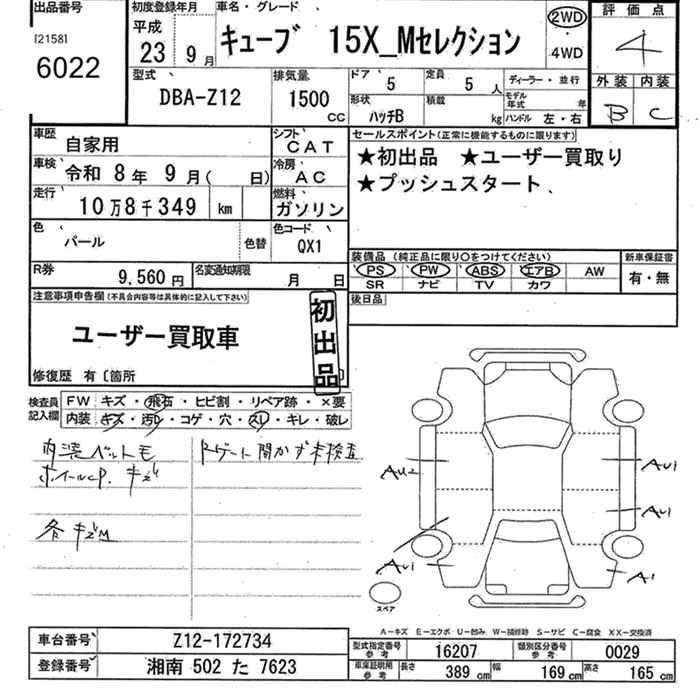 出品番号 初度登録年月 車名・グレード 評価点
[2158] 平成 23 9月 キューブ 15X_Mセレクション 2WD・4WD 4
6022
型式 排気量 ドア 5 定員 5人 ディーラー・並行 外装 内装
DBA-Z12 1500cc 形状 ハッチB 積載 kg モデル年式 年 B C
ハンドル 左・右
車歴 自家用 シフト CAT セールスポイント(正常に機能するものに限ります)
車検 令和 8年 9月( 日) 冷房 AC ★初出品 ★ユーザー買取り
走行 10万8千349 km 燃料 ガソリン ★プッシュスタート、
色 パール 色替 色コード QX1
装備品(純正品に限り○をつけてください) 新車保証書
R券 9,560円 名変通知期限 月 日 PS PW ABS エアB AW 有・無
SR ナビ TV カワ
注意事項申告欄(不具合内容等は具体的に記入して下さい) 後日品
ユーザー買取車 初出品
修復歴 有〔箇所
検査員記入欄 FW キズ・飛石・ヒビ割・リペア跡・×要
内装 キズ・汚レ・コゲ・穴・スレ・キレ・破レ
内装ペット毛 Rゲート開かず未検査
ホイールcp. キズ
各キズM
AU2 AU1
AU1
AU1 A1
スペア
A-キズ E-エクボ U-凹み W-補修跡 S-サビ C-腐食 XX-交換済
車台番号 Z12-172734 型式指定番号 参考 16207 類別区分番号 参考 0029
登録番号 湘南 502 た 7623 車庫証明用 参考 長さ 389cm 幅 169cm 高さ 165cm